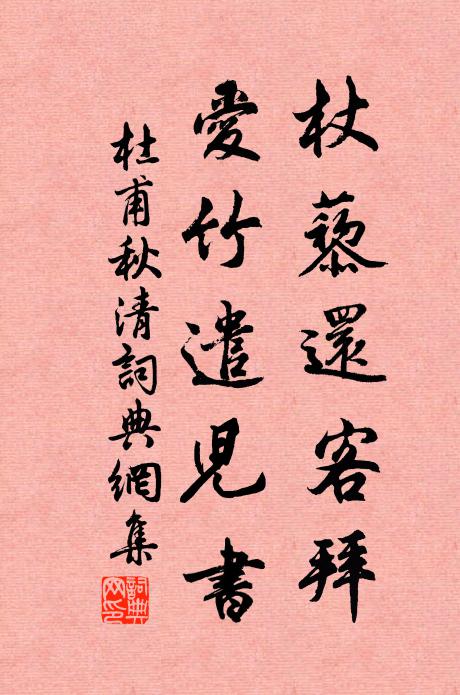 杖藜還客拜
愛竹遣児書
杜甫秋清詞典網集
詞典网印